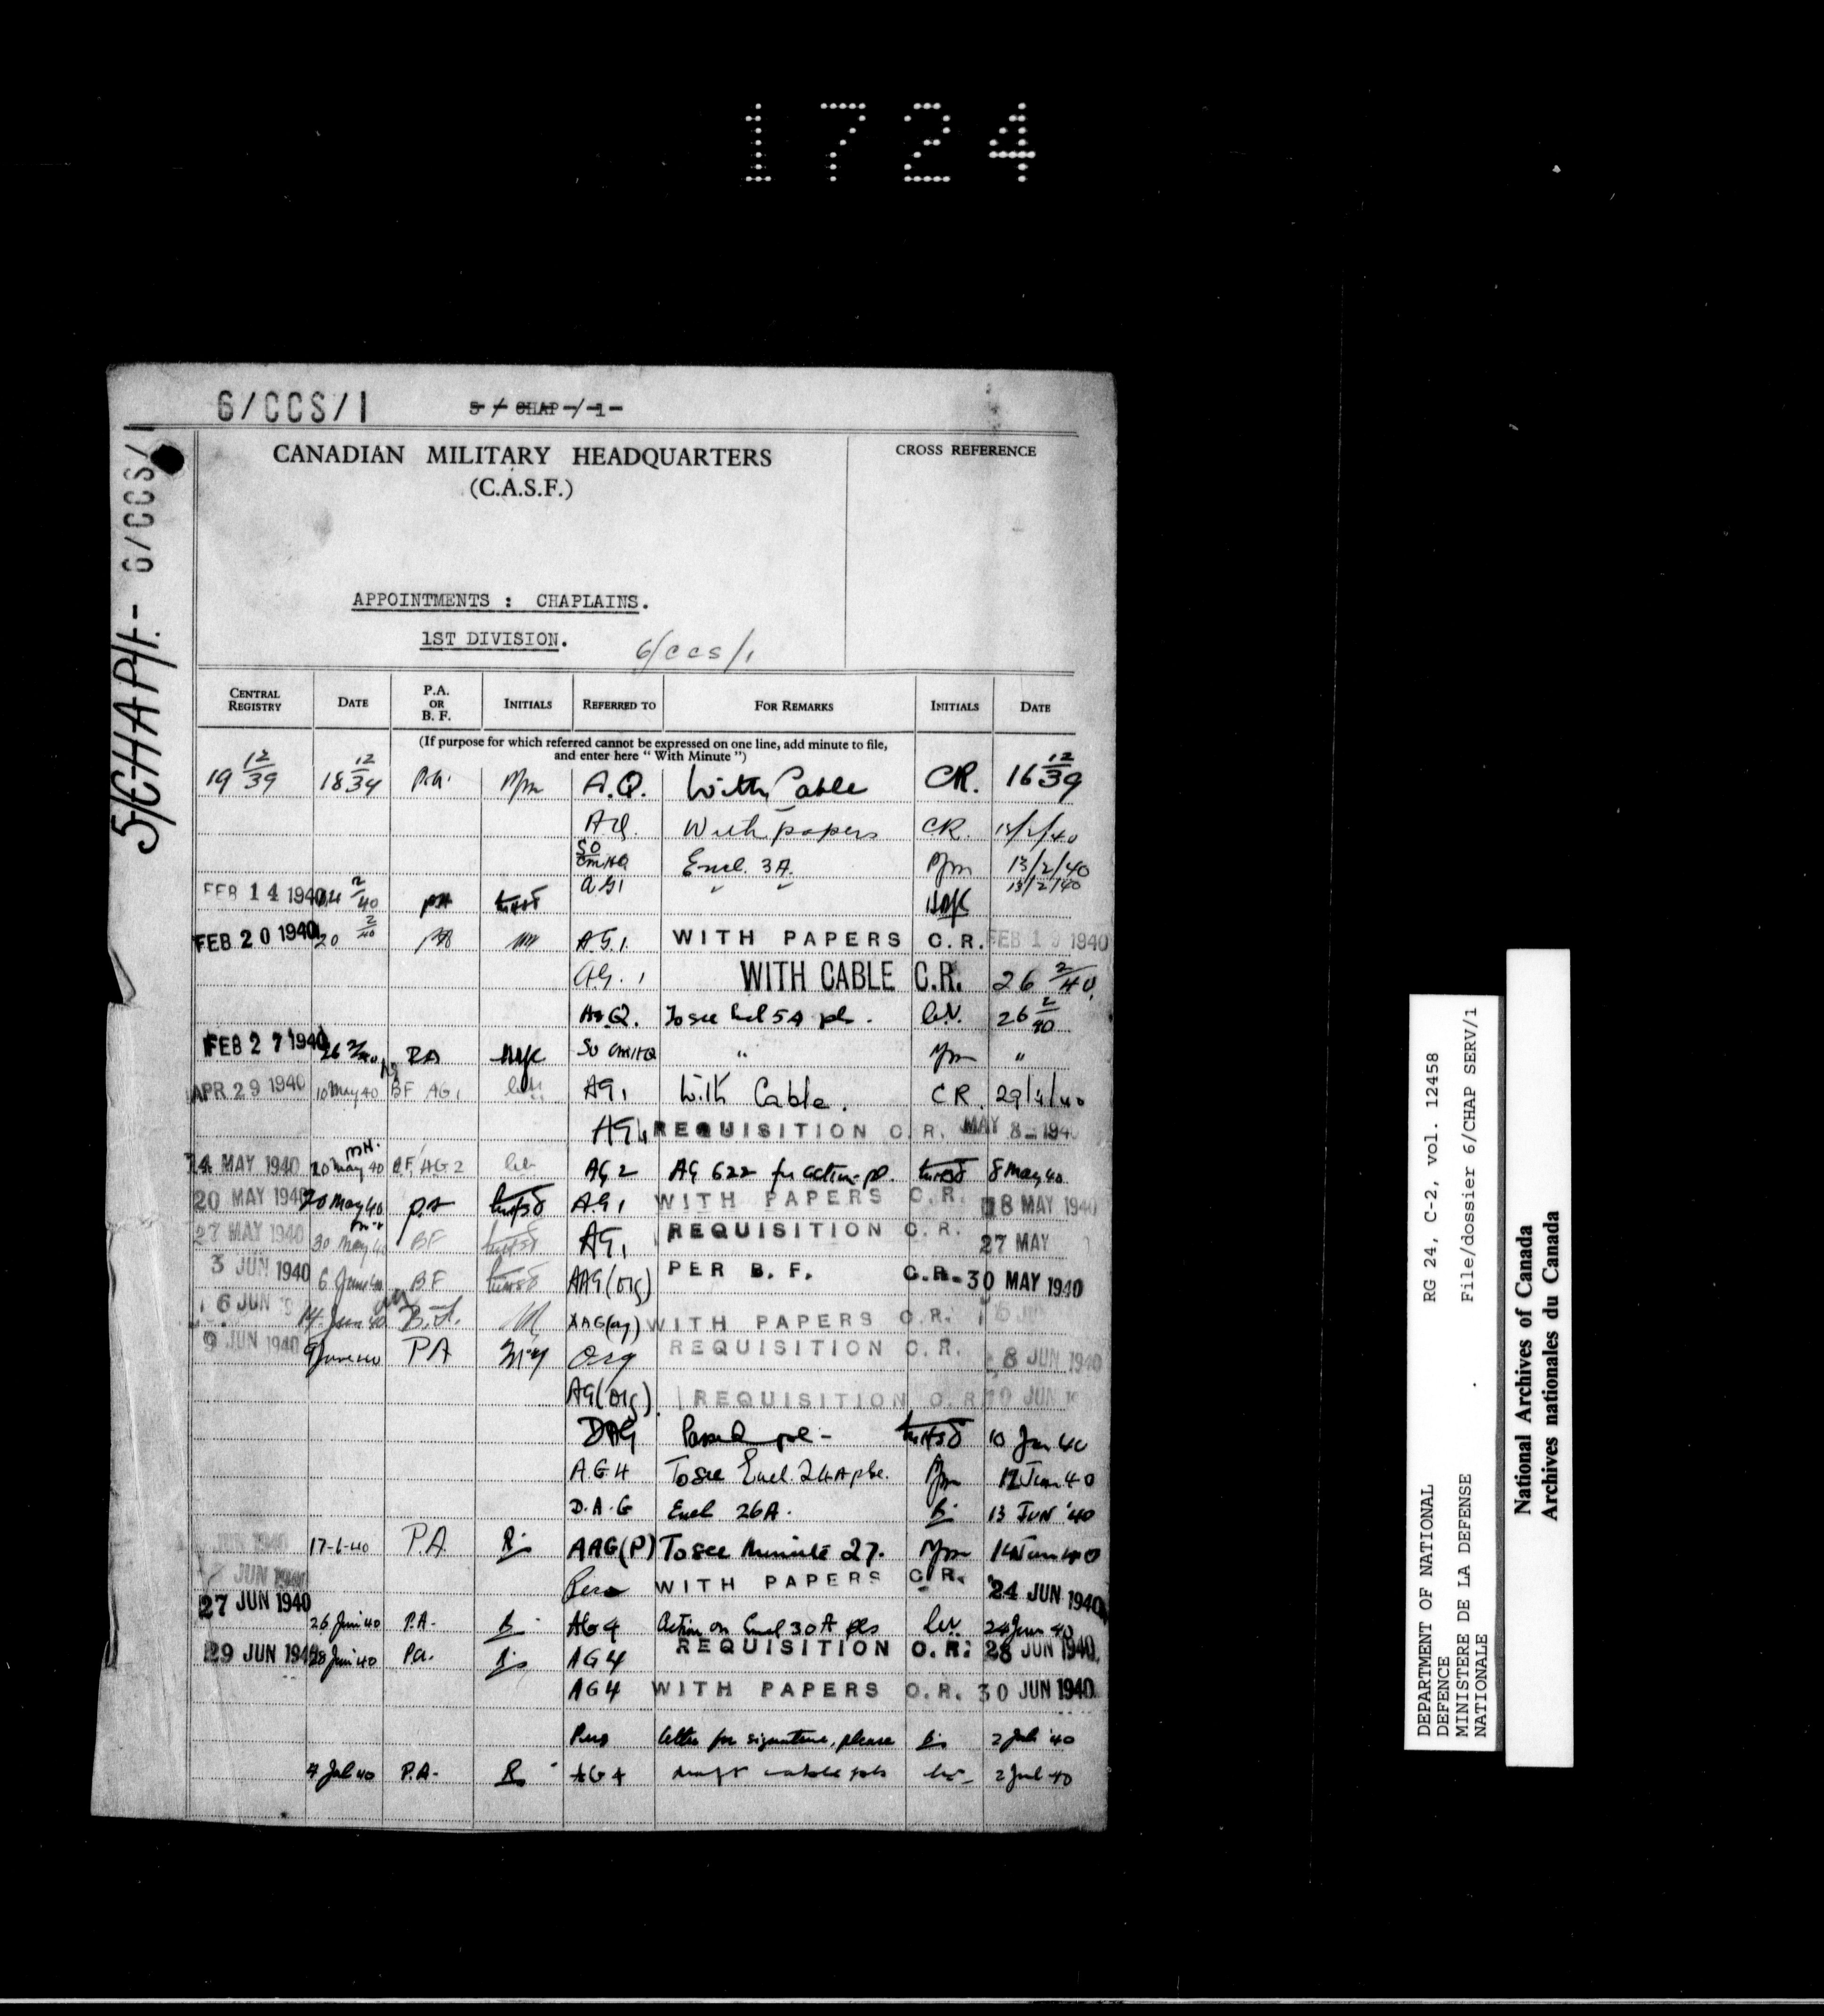 1724
6/CCS/1 5/CHAP/1
CANADIAN MILITARY HEADQUARTERS
(C.A.S.F.)
CROSS REFERENCE
APPOINTMENTS : CHAPLAINS.
1ST DIVISION.
6/CCS/1
CENTRAL REGISTRY DATE P.A. OR B. F. INITIALS REFERRED TO FOR REMARKS INITIALS DATE
(If purpose for which referred cannot be expressed on one line, add minute to file,
and enter here "With Minute")
19 12/39 18 12/39 P.A. A.Q. With Cable CR. 16 12/39
With papers CR.
Encl. 3A. 13/2/40
AG1 " " 13/2/40
FEB 14 1940 2/40 PA
FEB 20 1940 20 2/40 PA AG.1 WITH PAPERS C.R. FEB 19 1940
AG. 1 WITH CABLE C.R. 26 2/40
To see Encl 5A 26 2/40
FEB 27 1940 26 PA SO CMHQ " "
APR 29 1940 10 May 40 BF AG1 AG1 With Cable. CR. 29/4/40
AG1 REQUISITION C.R. MAY 8 - 1940
14 MAY 1940 20 May 40 BF AG2 AG2 AG 622 for action pl. 8 May 40
20 MAY 1940 20 May 40 PA AG1 WITH PAPERS C.R. 18 MAY 1940
27 MAY 1940 30 May 40 BF AG1 REQUISITION C.R. 27 MAY
3 JUN 1940 6 June 40 BF AAG(Org) PER B. F. C.R. 30 MAY 1940
6 JUN 14 Jun 40 B.F. AAG(Org) WITH PAPERS C.R.
9 JUN 1940 9 June 40 PA Org REQUISITION C.R. 8 JUN 1940
AG(Org) REQUISITION C.R. 10 JUN
DAG Passed 10 Jun 40
AG4 To see Encl. 24A plse. 12 Jun 40
D.A.G Encl 26A. 13 JUN '40
JUN 1940 17-6-40 P.A. AAG(P) To see Minute 27.
JUN 1940 Pers WITH PAPERS C.R. 24 JUN 1940
27 JUN 1940 26 Jun 40 P.A. AG4 Action on Encl 30A pls 24 Jun 40
29 JUN 1940 28 Jun 40 PA. AG4 REQUISITION C.R. 28 JUN 1940
AG4 WITH PAPERS C.R. 30 JUN 1940
Pers letter for signature, please 2 Jul '40
4 Jul 40 P.A. AG4 draft 2 Jul 40
5/CHAP/1 - 6/CCS/1
DEPARTMENT OF NATIONAL RG 24, C-2, vol. 12458
DEFENCE
MINISTERE DE LA DEFENSE File/dossier 6/CHAP SERV/1
NATIONALE
National Archives of Canada
Archives nationales du Canada